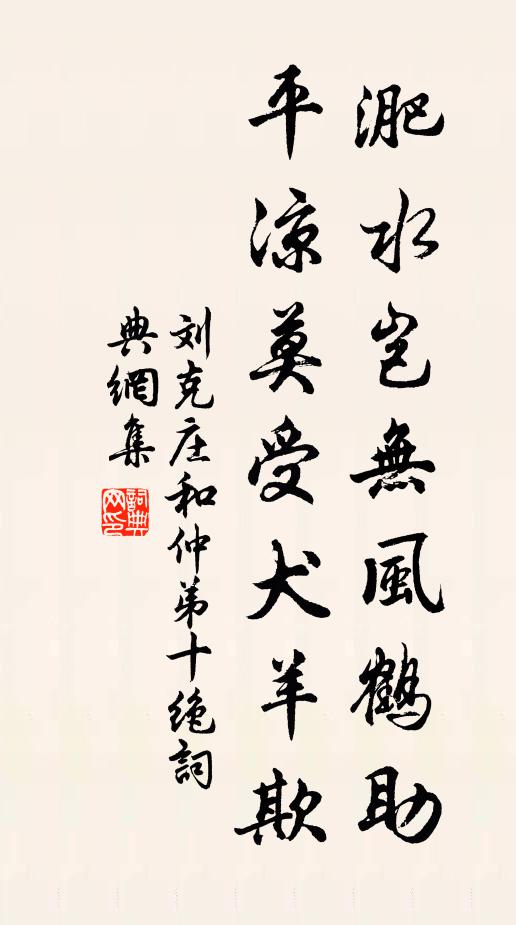 淝水岂無風鶴助
平涼莫受犬羊欺
刘克庄和仲弟十绝詞
典網集
詞典
网印